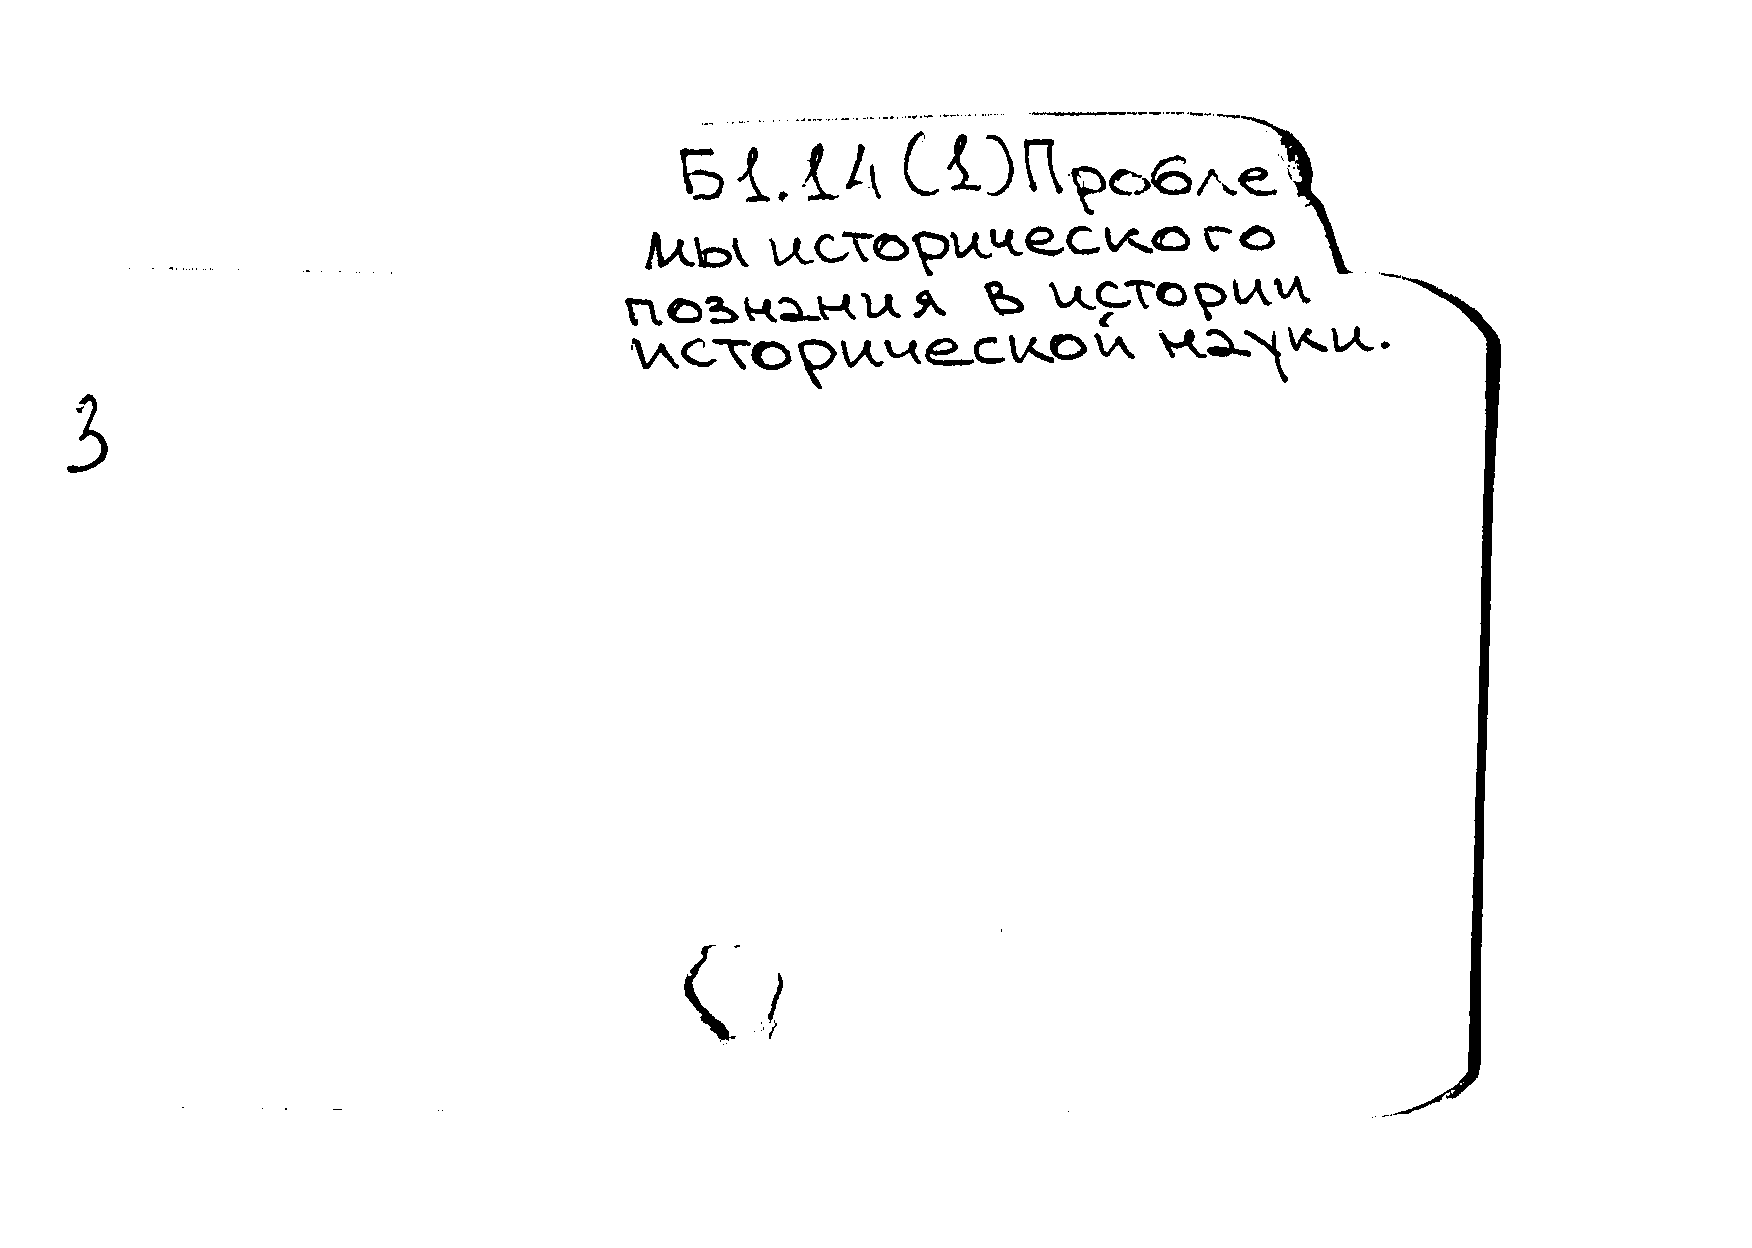 Б1.14 (1) Пробле
мы исторического
познания в истории
исторической науки.
3